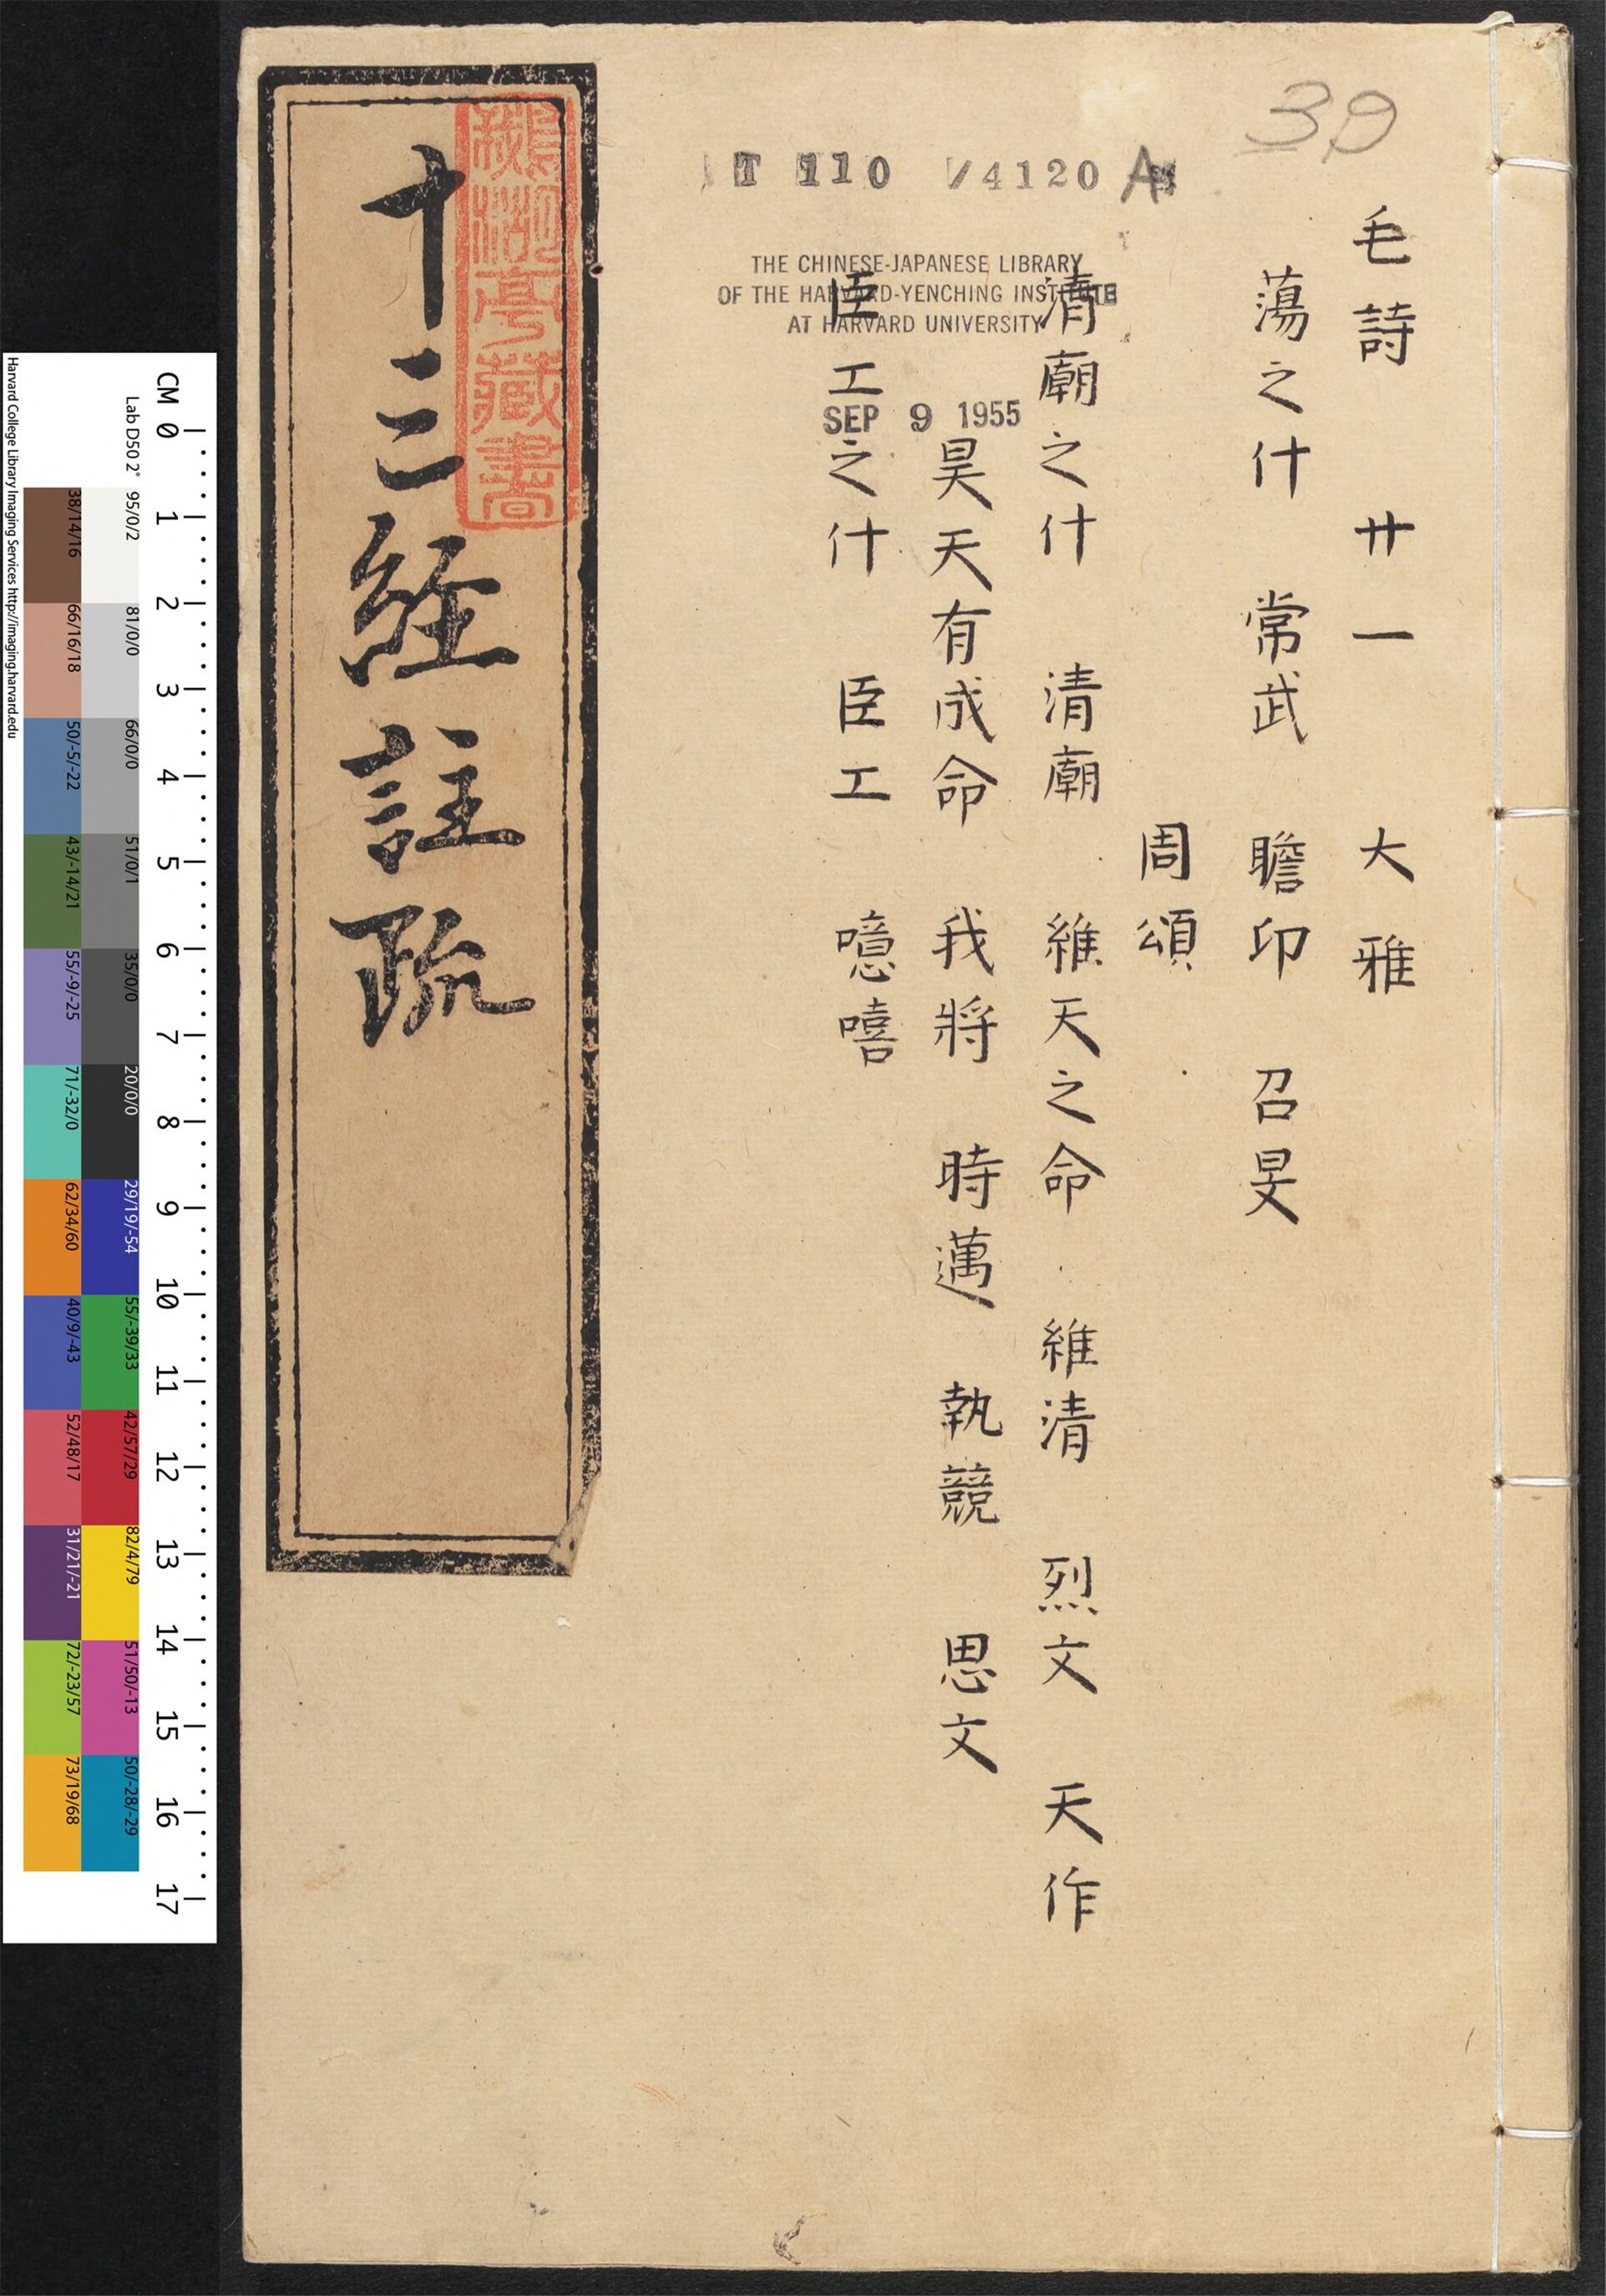 39
T 110 /4120 A
THE CHINESE-JAPANESE LIBRARY
OF THE HARVARD-YENCHING INSTITUTE
AT HARVARD UNIVERSITY
SEP 9 1955
毛詩 廿一 大雅
蕩之什 常武 瞻印 召旻
周頌
清廟之什 清廟 維天之命 維清 烈文 天作
昊天有成命 我將 時邁 執競 思文
臣工之什 臣工 噫嘻
十三經註疏
亭藏書
CM 0 1 2 3 4 5 6 7 8 9 10 11 12 13 14 15 16 17
Lab D50 2° 95/0/2 81/0/0 66/0/0 51/0/1 35/0/0 20/0/0 29/19/-54 55/-39/33 42/57/29 82/4/79 51/50/-13 50/-28/-29
38/14/16 66/16/18 50/-5/-22 43/-14/21 55/-9/-25 71/-32/0 62/34/60 40/9/-43 52/48/17 31/21/-21 72/-23/57 73/19/68
Harvard College Library Imaging Services http://imaging.harvard.edu